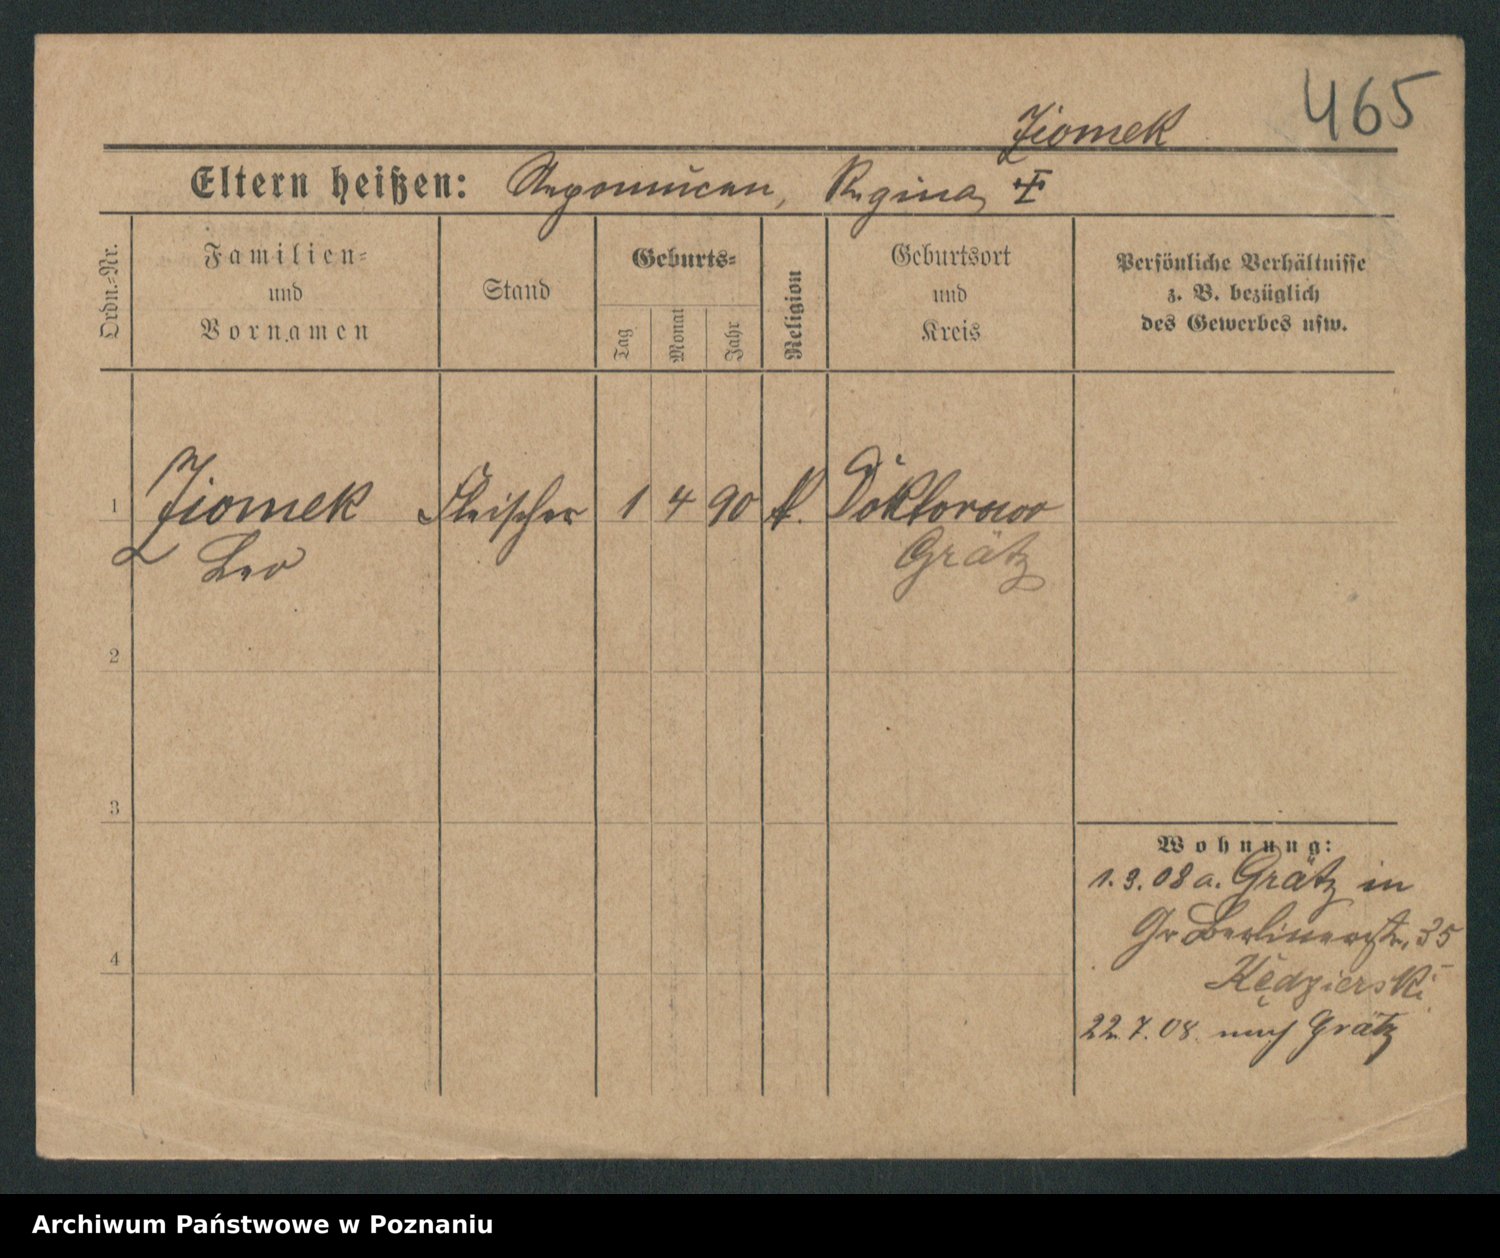 465
Ziomek
Eltern heißen: Nepomucen, Regina
Ordn.-Nr.
Familien-
und
Vornamen
Stand
Geburts-
Tag
Monat
Jahr
Religion
Geburtsort
und
Kreis
Persönliche Verhältnisse
z. B. bezüglich
des Gewerbes usw.
1 Ziomek Fleischer 1 4 90 k. Doktorowo
Leo Grätz
2
3
4
Wohnung:
1.3.08 a. Grätz in
Gr Berlinerstr. 35
Kędzierski
22.7.08. nach Grätz
Archiwum Państwowe w Poznaniu